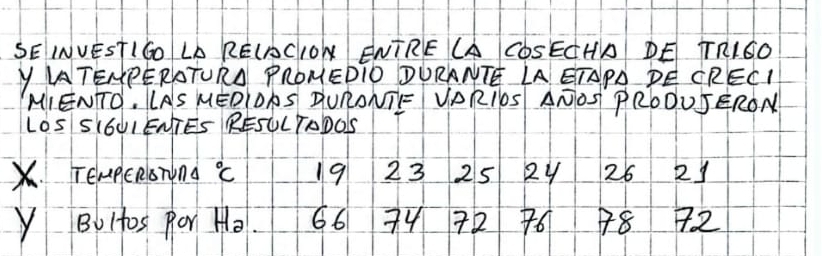 SE INVESTIGO LA RELACION ENTRE LA COSECHA DE TRIGO
Y LA TEMPERATURA PROMEDIO DURANTE LA ETAPA DE CRECI
MIENTO. LAS MEDIDAS DURANTE VARIOS AÑOS PRODUJERON
LOS SIGUIENTES RESULTADOS
X. TEMPERATURA °C 19 23 25 24 26 21
Y Bultos por Ha. 66 74 72 76 78 72